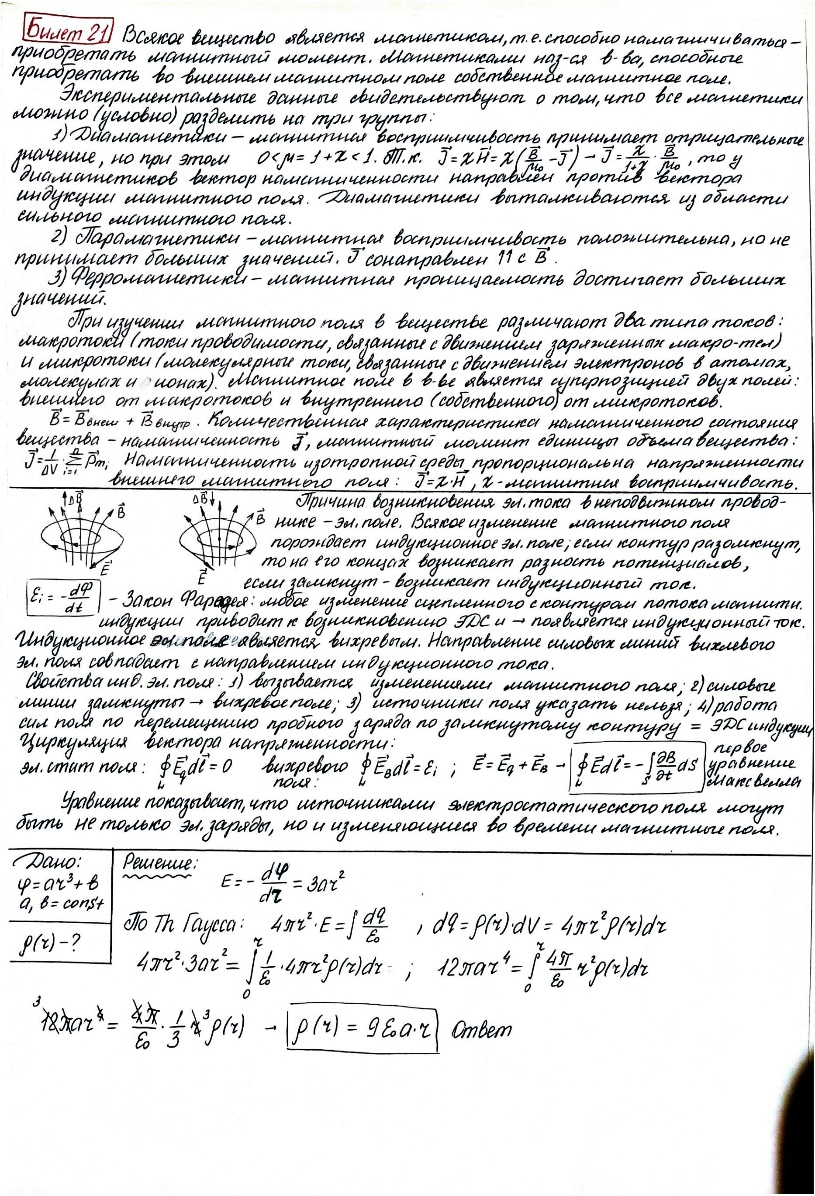 Билет 21 Всякое вещество является магнетикам, т.е. способно намагничиваться –
приобретать магнитный момент. Магнетиками наз-ся в-ва, способные
приобретать во внешнем магнитном поле собственное магнитное поле.
Экспериментальные данные свидетельствуют о том, что все магнетики
можно (условно) разделить на три группы:
1) Диамагнетики – магнитная восприимчивость принимает отрицательные
значение, но при этом 0<μ=1+χ<1. Т.к. J⃗=χH⃗=χ(B⃗/μ₀ - J⃗) → J⃗=χ/(1+χ)·B⃗/μ₀, то у
диамагнетиков вектор намагниченности направлен против вектора
индукции магнитного поля. Диамагнетики выталкиваются из области
сильного магнитного поля.
2) Парамагнетики – магнитная восприимчивость положительна, но не
принимает больших значений. J⃗ сонаправлен ↑↑ с B⃗.
3) Ферромагнетики – магнитная проницаемость достигает больших
значений.
При изучении магнитного поля в веществе различают два типа токов:
макротоки (токи проводимости, связанные с движением заряженных макро-тел)
и микротоки (молекулярные токи, связанные с движением электронов в атомах,
молекулах и ионах). Магнитное поле в в-ве является суперпозицией двух полей:
внешнего от макротоков и внутреннего (собственного) от микротоков.
B⃗=B⃗внеш + B⃗внутр. Количественная характеристика намагниченного состояния
вещества – намагниченность J⃗, магнитный момент единицы объема вещества:
J⃗=1/ΔV·∑ⁿᵢ₌₁ P⃗mᵢ Намагниченность изотропной среды пропорциональна напряженности
внешнего магнитного поля: J⃗=χ·H⃗, χ-магнитная восприимчивость.
ΔB⃗ B⃗ E⃗ ΔB⃗ B⃗ E⃗
Причина возникновения эл.тока в неподвижном провод-
нике – эл.поле. Всякое изменение магнитного поля
порождает индукционное эл.поле; если контур разомкнут,
то на его концах возникает разность потенциалов,
если замкнут - возникает индукционный ток.
Ɛi = -dФ/dt – Закон Фарадея: любое изменение сцепленного с контуром потока магнитн.
индукции приводит к возникновению ЭДС и → появляется индукционный ток.
Индукционное эл.поле является вихревым. Направление силовых линий вихлевого
эл.поля совпадает с направлением индукционного тока.
Свойства инд.эл.поля: 1) вызывается изменениями магнитного поля; 2) силовые
линии замкнуты → вихревое поле; 3) источники поля указать нельзя; 4) работа
сил поля по перемещению пробного заряда по замкнутому контуру = ЭДС индукции
Циркуляция вектора напряженности:
эл.стат поля: ∮E⃗qdl⃗=0 вихревого поля: ∮E⃗Bdl⃗=Ɛi ; E⃗=E⃗q+E⃗B → ∮E⃗dl⃗=-∫∂B/∂t dS первое уравнение Максвелла
Уравнение показывает, что источниками электростатического поля могут
быть не только эл.заряды, но и изменяющиеся во времени магнитные поля.
Дано:
φ=ar³+b
a, b=const
ρ(r)-?
Решение: E=-dφ/dr=3ar²
По Th Гаусса: 4πr²·E=∫dq/ε₀ , dq=ρ(r)·dV=4πr²ρ(r)dr
4πr²·3ar²=∫₀ʳ 1/ε₀·4πr²ρ(r)dr ; 12πar⁴=∫₀ʳ 4π/ε₀ r²ρ(r)dr
³12πar⁴=4π/ε₀·1/3 r³ρ(r) → ρ(r)=9ε₀a·r Ответ